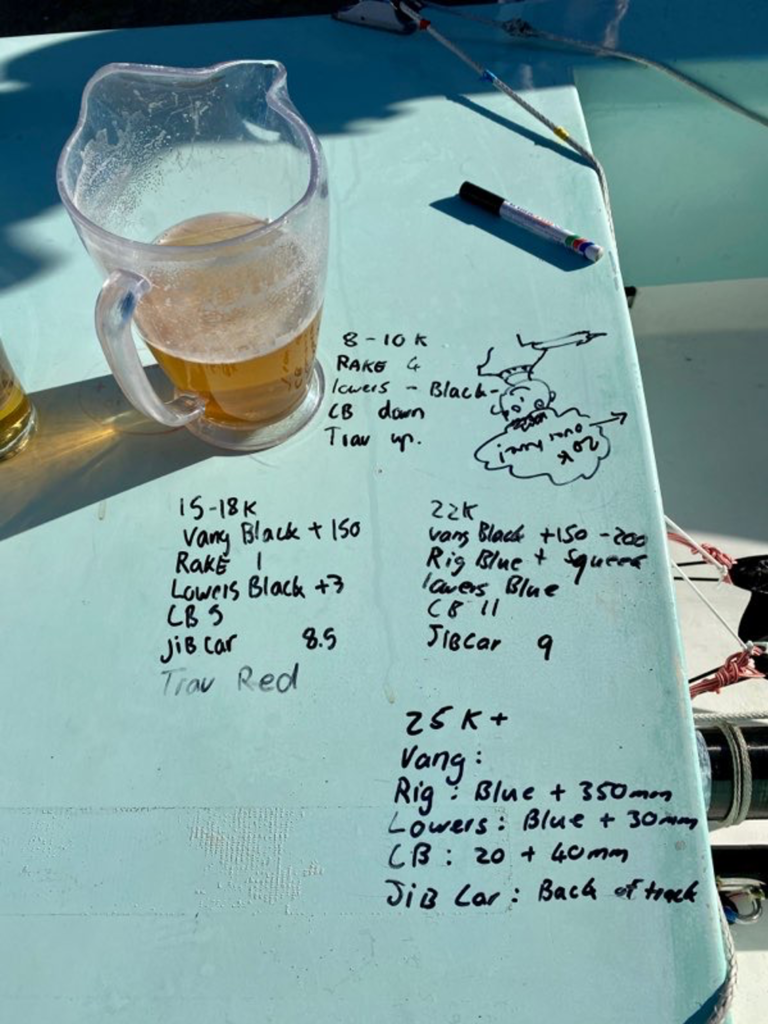 8-10K
RAKE 4
lowers - Black-
CB down
Trav up.
20K
over here!
15-18K
Vang Black + 150
RAKE 1
Lowers Black +3
CB 5
JIB Car 8.5
Trav Red
22K
vang Black +150 -200
Rig Blue + squeeze
lowers Blue
CB 11
JIBCar 9
25K+
Vang:
Rig: Blue + 350mm
Lowers: Blue + 30mm
CB: 20 + 40mm
JiB Car: Back of track